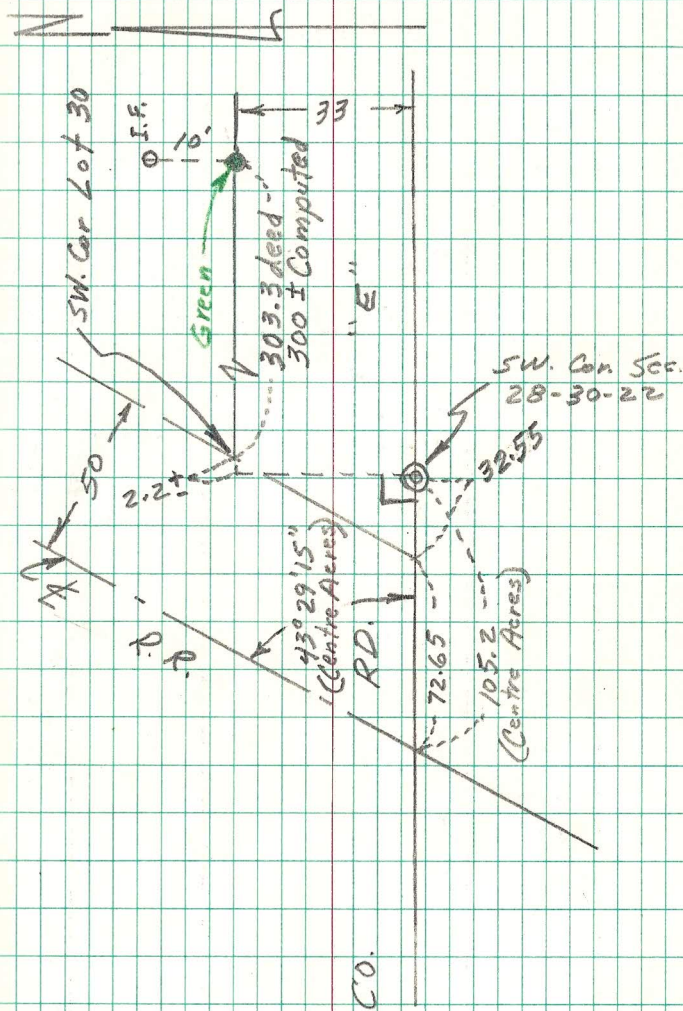 N
SW. Cor Lot 30
I.F.
10'
33
Green
303.3 deed
300 ± Computed
"E"
50
2.2±
SW. Cor. Sec.
28-30-22
32.55
43° 29' 15"
(Centre Acres)
RD.
72.65
105.2
(Centre Acres)
CO.